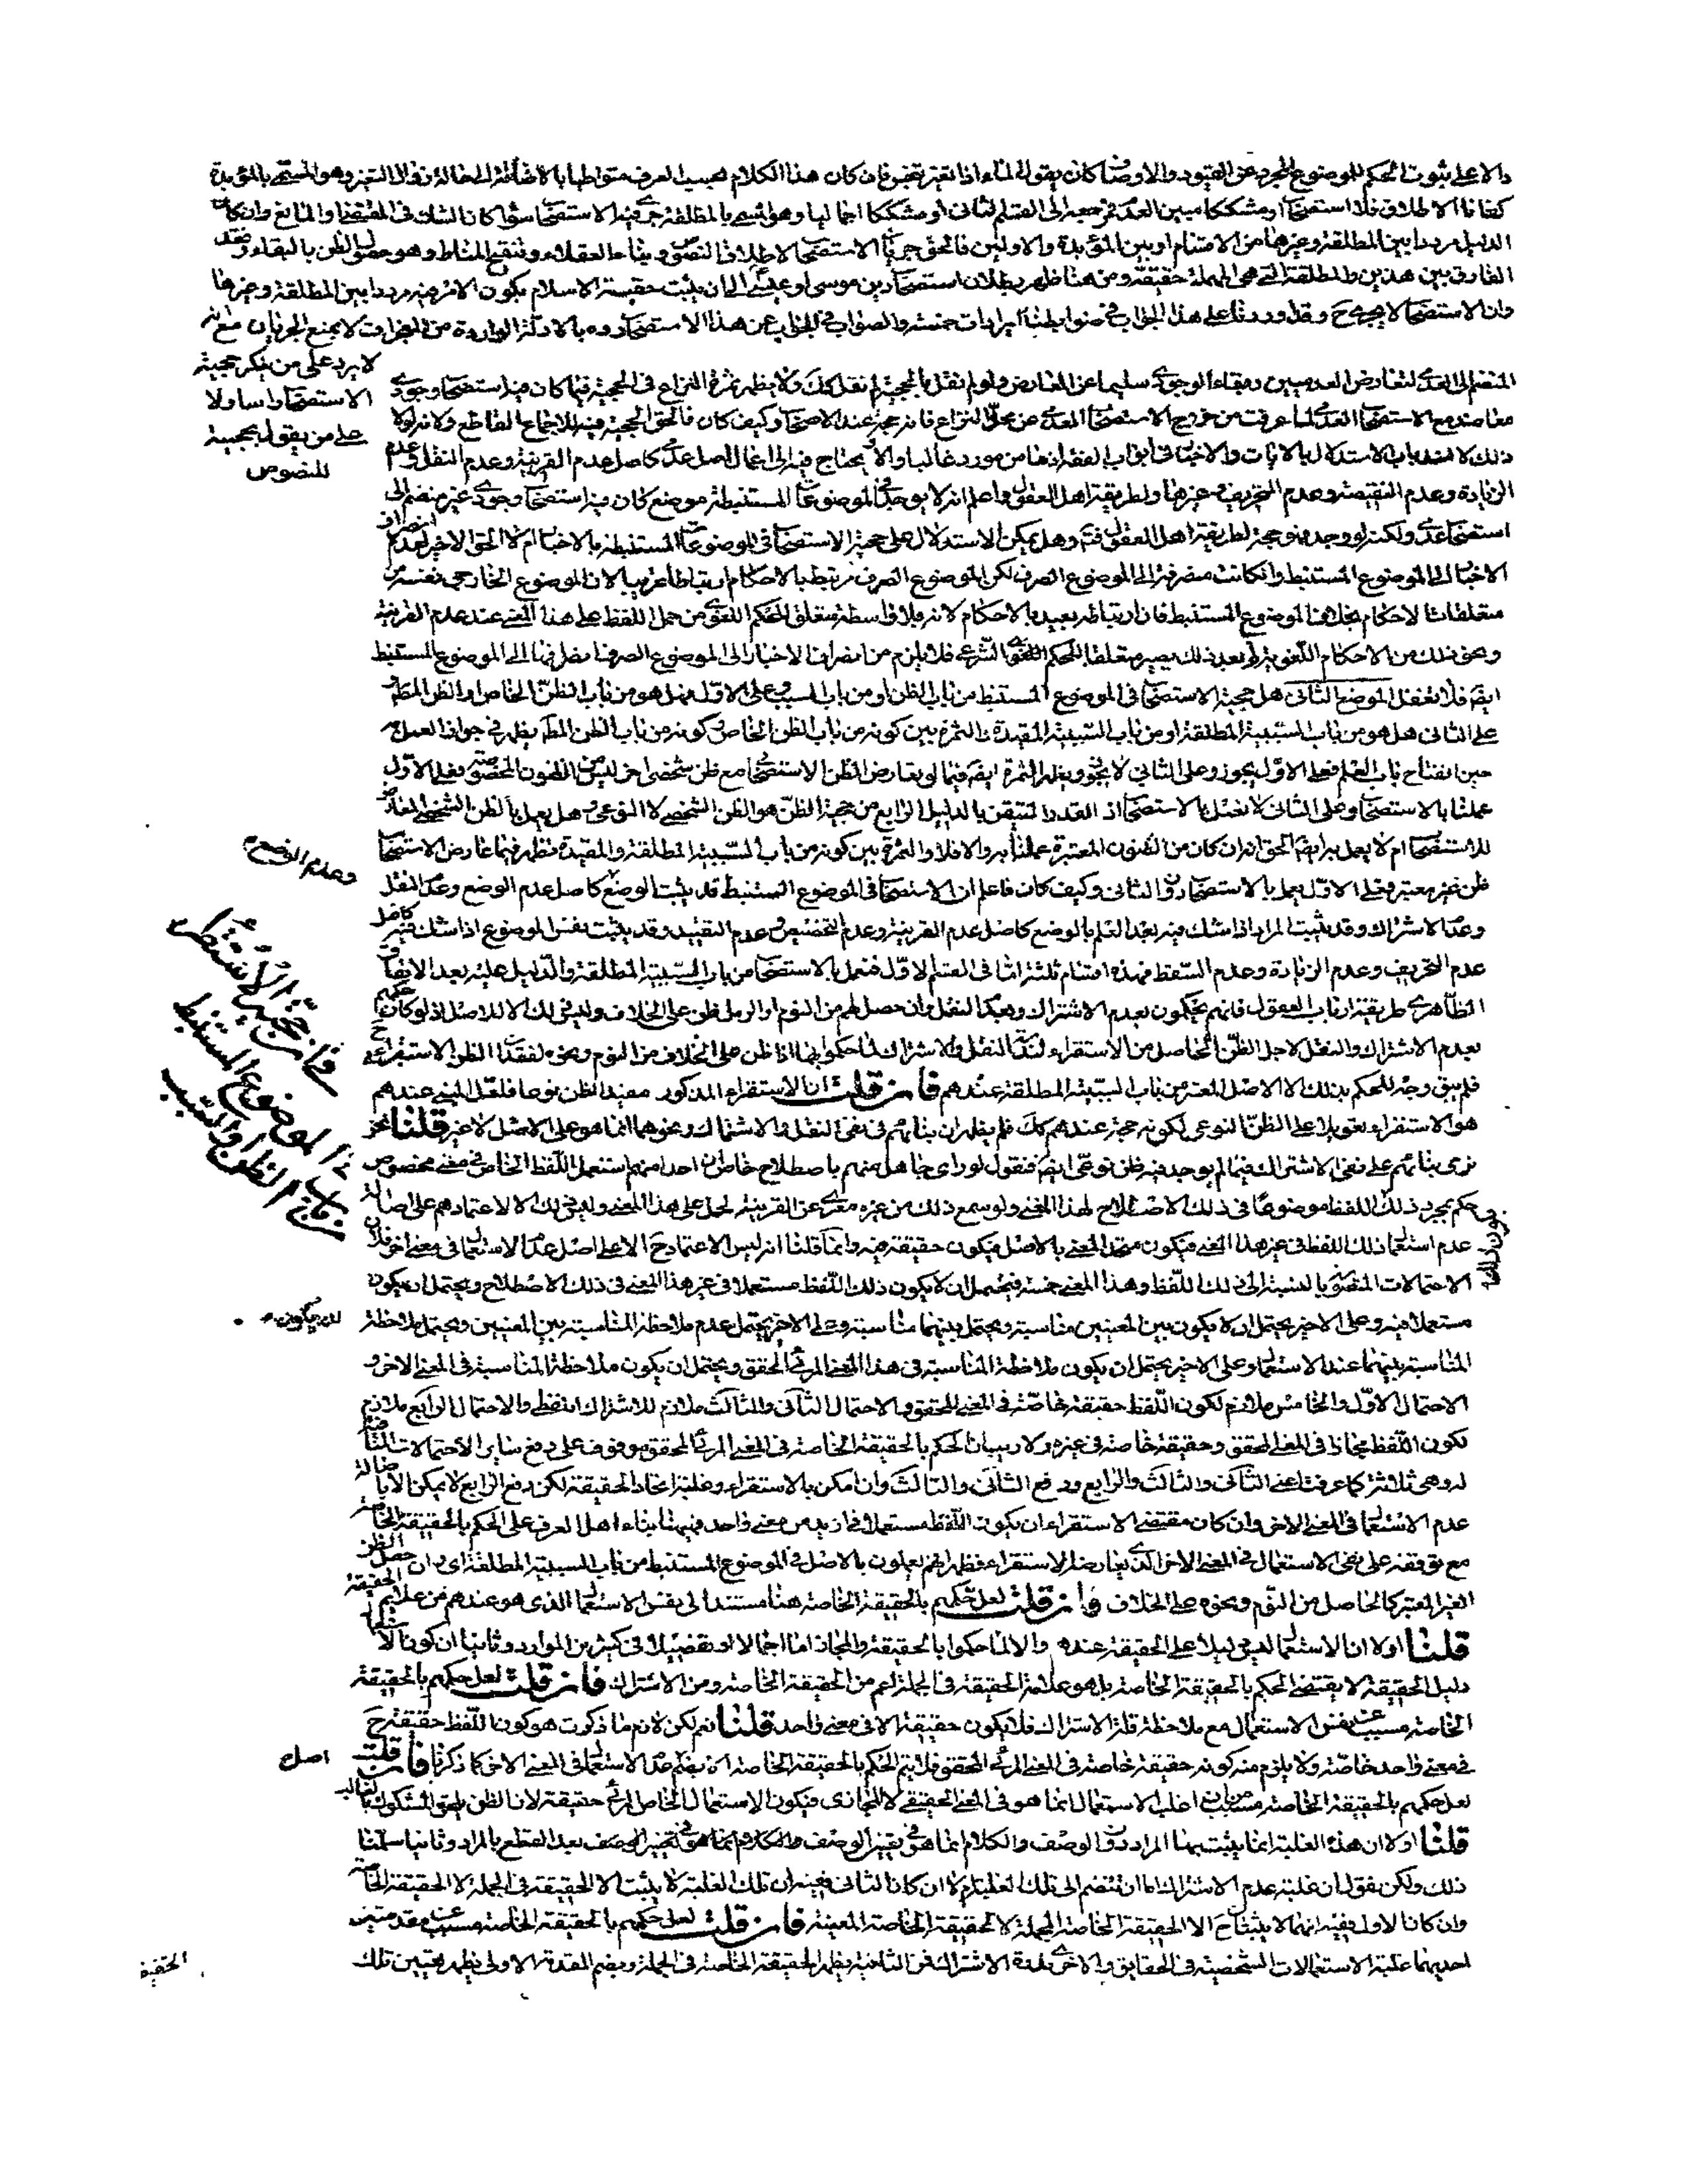 دالا على ثبوت الحكم للموضوع المجرد عن القيود والاوصاف كان يقول الماء اذا تغير تنجس فان كان هذا الكلام بحسب العرف متواطيا بالاضافة الى حالة زوال التغير وهو المسمى بالمؤبدة
كفانا الاطلاق فلا استصحاب او مشككا مبين العدم فمرجعه الى القسم الثانى او مشككا اجماليا وهو المسمى بالمطلقة جرى فيه الاستصحاب سواء كان الشك فى المقتضى او المانع وان كان
الدليل مرددا بين المطلقة وغيرها من الاقسام او بين المؤبدة والاوليين فالحق جريان الاستصحاب لاطلاق النصوص وبناء العقلاء وتنقيح المناط وهو حصول الظن بالبقاء وفقد
الفارق بين هذين والمطلقة التى هى المهملة حقيقة ومن هنا ظهر بطلان استصحاب دين موسى او عيسى الى ان يثبت حقية الاسلام لكون الامر فيه مرددا بين المطلقة وغيرها
وان الاستصحاب لا يجرى ح وقد اوردنا على هذا الجواب فى ضوابطنا ايرادات خمسة والصواب فى الجواب عن هذا الاستصحاب رده بالادلة الواردة من المعجزات لا بمنع الجريان مع انه
لا يرد على من ينكر حجية
الاستصحاب راسا ولا
على من يقول بحجية
للنصوص
المنضم الى العدمى لتعارض العدميين وبقاء الوجودى سليما عن المعارض ولو لم نقل بالحجية لم نقل كك ولا يظهر ثمرة النزاع فى الحجية فيما كان فيه استصحاب وجودى
معاضد مع الاستصحاب العدمى لما عرفت من خروج الاستصحاب العدمى عن محل النزاع فانه حجة عند الاصحاب وكيف كان فالحق الحجية فيه للاجماع القاطع ولانه لولا
ذلك لانسد باب الاستدلال بالايات والاخبار فى ابواب الفقه اذ ما من مورد غالبا والا يحتاج فيه الى اعمال اصل عدمى كاصل عدم القرينة وعدم النقل وعدم
الزيادة وعدم النقيصة وعدم التحريف وغيرها ولطريقة اهل العقول واعلم انه لا يوجد فى الموضوعات المستنبطة موضع كان فيه استصحاب وجودى غير منضم الى
استصحاب عدمى ولكنه لو وجد فهو حجة لطريقة اهل العقول فتم وهل يمكن الاستدلال على حجية الاستصحاب فى الموضوعات المستنبطة بالاخبار ام لا الحق الاخير لعدم انصراف
الاخبار الى الموضوع المستنبط وان كانت منصرفة الى الموضوع الصرف لكن الموضوع الصرف مرتبط بالاحكام ارتباطا قريبا لان الموضوع الخارجى نفسه من
متعلقات الاحكام بخلاف الموضوع المستنبط فان ارتباطه بعيد بالاحكام لانه بلا واسطة متعلق للحكم اللغوى من حمل اللفظ على هذا المعنى عند عدم القرينة
ونحو ذلك من الاحكام اللغوية وبعد ذلك يصير متعلقا للحكم الشرعى فلا يلزم من انصراف الاخبار الى الموضوع الصرف انصرافها الى الموضوع المستنبط
ايضا فلا تغفل الموضع الثانى هل حجية الاستصحاب فى الموضوع المستنبط من باب الظن او من باب السبب وعلى الاول فهل هو من باب الظن الخاص او الظن المطلق و
على الثانى هل هو من باب السببية المطلقة او من باب السببية المقيدة والثمرة بين كونه من باب الظن الخاص وكونه من باب الظن المطلق يظهر فى جواز العمل به
حين انفتاح باب العلم فعلى الاول يجوز وعلى الثانى لا يجوز ويظهر الثمرة ايضا فيما لو تعارض الظن الاستصحابى مع ظن شخصى اخر ليس من الظنون المخصوصة فعلى الاول
عملنا بالاستصحاب وعلى الثانى لا نعمل بالاستصحاب اذ القدر المتيقن بالدليل الرابع من حجية الظن هو الظن الشخصى لا النوعى وهل يعمل بالظن الشخصى المعارض
للاستصحاب ام لا يعمل به ايضا الحق انه ان كان من الظنون المعتبرة عملنا به والا فلا والثمرة بين كونه من باب السببية المطلقة والمقيدة تظهر فيما عارض الاستصحاب
ظن غير معتبر فعلى الاول يعمل بالاستصحاب دون الثانى وكيف كان فاعلم ان الاستصحاب فى الموضوع المستنبط قد يثبت الوضع كاصل عدم الوضع وعدم النقل
وعدم الاشتراك وقد يثبت المراد اذا شك فيه بعد العلم بالوضع كاصل عدم القرينة وعدم التخصيص وعدم التقييد وقد يثبت نفس الموضوع اذا شك فيه كاصل
عدم التحريف وعدم الزيادة وعدم السقط فهذه اقسام ثلثة اما فى القسم الاول فنعمل بالاستصحاب من باب السببية المطلقة والدليل عليه بعد الاتفاق
الظاهرى طريقة ارباب العقول فانهم يحكمون بعدم الاشتراك وبعدم النقل وان حصل لهم من النوم او الرمل ظن على الخلاف وليس ذلك الا للاصل اذ لو كان حكمهم
بعدم الاشتراك والنقل لاجل الظن الحاصل من الاستقراء لندرة النقل والاشتراك لما حكموا بهما اذا ظن على الخلاف من النوم ونحوه لفقدان الظن الاستقرائى ح
فلم يبق وجه للحكم بذلك الا الاصل المعتبر من باب السببية المطلقة عندهم فان قلت ان الاستقراء المذكور مفيد الظن نوعا فلعل المبنى عندهم
هو الاستقراء تعويلا على الظن النوعى لكونه حجة عندهم كك فلم يظهر ان بنائهم فى نفى النقل والاشتراك ونحوهما انما هو على الاصل لا غير قلنا نحن
نرى بنائهم على نفى الاشتراك فيما لم يوجد فيه ظن نوعى ايضا فنقول لو راى جاهل منهم باصطلاح خاص ان احدا منهم استعمل اللفظ الخاص فى معنى مخصوص
حكم بمجرد ذلك اللفظ موضوعا فى ذلك الاصطلاح لهذا المعنى ولو سمع ذلك من غيره معرى عن القرينة لحمل على هذا المعنى وليس ذلك الا لاعتمادهم على اصالة
عدم استعمال ذلك اللفظ فى غير هذا المعنى فيكون متحد المعنى بالاصل فيكون حقيقة فيه وانما قلنا انه ليس الاعتماد ح الا على اصل عدم الاستعمال فى معنى اخر فلان
الاحتمالات المتصورة بالنسبة الى ذلك اللفظ وهذا المعنى خمسة فيحتمل ان لا يكون ذلك اللفظ مستعملا فى غير هذا المعنى فى ذلك الاصطلاح ويحتمل ان يكون
مستعملا فيه وعلى الاخير يحتمل ان لا يكون بين المعنيين مناسبة ويحتمل بينهما مناسبة وعلى الاخير يحتمل عدم ملاحظة المناسبة بين المعنيين ويحتمل ملاحظة
المناسبة بينهما عند الاستعمال وعلى الاخير يحتمل ان يكون ملاحظة المناسبة فى هذا المعنى المرئى المحقق ويحتمل ان يكون ملاحظة المناسبة فى المعنى الاخر و
الاحتمال الاول والخامس ملازم لكون اللفظ حقيقة خاصة فى المعنى المحقق والاحتمال الثانى والثالث ملازم للاشتراك اللفظى والاحتمال الرابع ملازم
لكون اللفظ مجازا فى المعنى المحقق وحقيقة خاصة فى غيره ولا ريب ان الحكم بالحقيقة الخاصة فى المعنى المرئى المحقق موقوف على دفع ساير الاحتمالات المناقضة
له وهى ثلاثة كما عرفت اعنى الثانى والثالث والرابع ودفع الثانى والثالث وان امكن بالاستقراء وغلبة اتحاد الحقيقة لكن دفع الرابع لا يمكن الا باصالة
عدم الاستعمال فى المعنى الاخر وان كان مقتضى الاستقراء ان يكون اللفظ مستعملا فى ازيد من معنى واحد فهيهنا بناء اهل العرف على الحكم بالحقيقة الخاصة
مع توقفه على نفى الاستعمال فى المعنى الاخر الذى يعارضه الاستقراء فظهر انهم يعملون بالاصل فى الموضوع المستنبط من باب السببية المطلقة اى وان حصل الظن
الغير المعتبر كالحاصل من النوم ونحوه على الخلاف وان قلت لعل حكمهم بالحقيقة الخاصة هنا مستند الى نفس الاستعمال الذى هو عندهم من علائم الحقيقة
قلنا اولا ان الاستعمال ليس دليلا على الحقيقة عندهم والا لما حكموا بالحقيقة والمجاز اما اجمالا او تفصيلا فى كثير من الموارد وثانيا ان كون الاستعمال
دليل الحقيقة لا يقتضى الحكم بالحقيقة الخاصة بل هو علامة الحقيقة فى الجملة اعم من الحقيقة الخاصة ومن الاشتراك فان قلت لعل حكمهم بالحقيقة
الخاصة مسبب عن نفس الاستعمال مع ملاحظة قلة الاشتراك فلا يكون حقيقة الا فى معنى واحد قلنا نعم لكن لازم ما ذكرت هو كون اللفظ حقيقة ح
فى معنى واحد خاصة ولا يلزم منه كونه حقيقة خاصة فى المعنى المرئى المحقق فلا يتم الحكم بالحقيقة الخاصة الا بضم عدم الاستعمال فى المعنى الاخر كما ذكرنا فان قلت
لعل حكمهم بالحقيقة الخاصة مسبب من ان اغلب الاستعمال انما هو فى المعنى الحقيقى لا المجازى فيكون الاستعمال الخاص المرئى حقيقة لان الظن يلحق المشكوك بالغالب
قلنا اولا ان هذه الغلبة انما يثبت بها المراد دون الوصف والكلام انما هو فى تعيين الوصف بعد القطع بالمراد وثانيا سلمنا
ذلك ولكن نقول ان غلبة عدم الاشتراك اما ان تنضم الى تلك الغلبة ام لا ان كان الثانى ففيه ان تلك الغلبة لا يثبت الا الحقيقة فى الجملة لا الحقيقة الخاصة
وان كان الاول ففيه انهما لا يثبتان ح الا الحقيقة الخاصة المجملة لا الحقيقة الخاصة المعينة فان قلت لعل حكمهم بالحقيقة الخاصة مسبب عن مقدمتين
احديهما غلبة الاستعمالات الشخصية فى الحقايق والاخرى ندرة الاشتراك فمن الثانية يظهر الحقيقة الخاصة فى الجملة وبضم المقدمة الاولى يظهر تعيين تلك
فى حجية الاستصحاب
فى الموضوع المستنبط
من باب الظن او السبب
اصل
الحقيقة